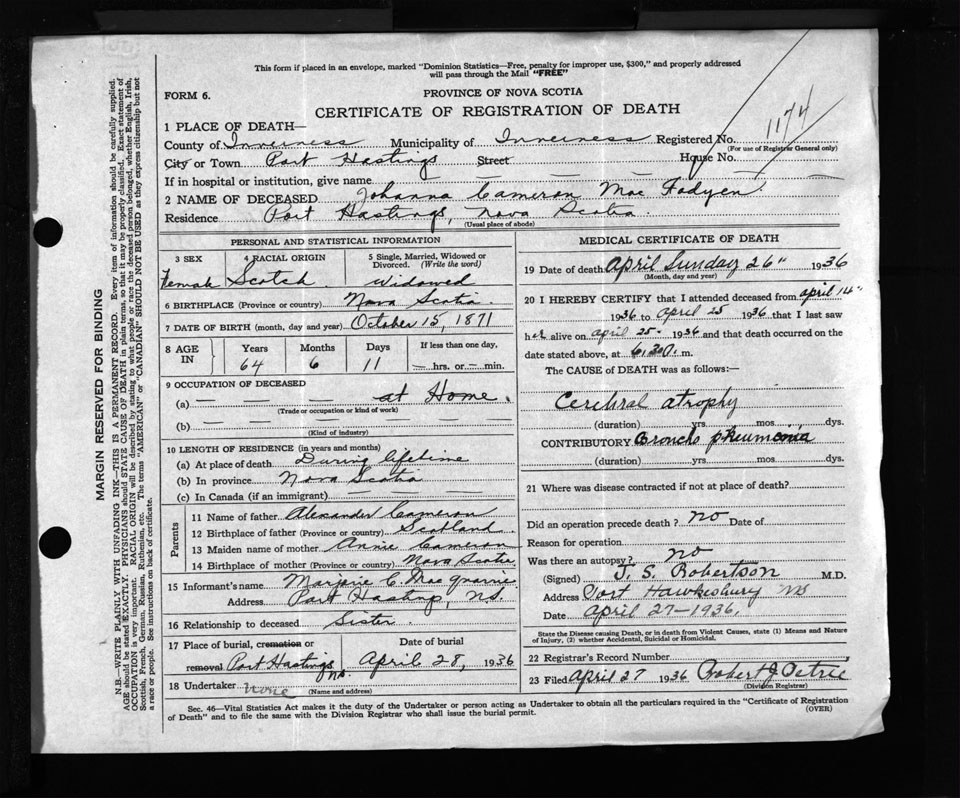 This form if placed in an envelope, marked "Dominion Statistics—Free, penalty for improper use, $300," and properly addressed
will pass through the Mail "FREE"
FORM 6.
PROVINCE OF NOVA SCOTIA
CERTIFICATE OF REGISTRATION OF DEATH
1174
1 PLACE OF DEATH—
County of Inverness Municipality of Inverness Registered No.
(For use of Registrar General only)
City or Town Port Hastings Street House No.
If in hospital or institution, give name
2 NAME OF DECEASED Johanna Cameron Mac Fadyen
Residence Port Hastings, Nova Scotia.
(Usual place of abode)
PERSONAL AND STATISTICAL INFORMATION
3 SEX 4 RACIAL ORIGIN 5 Single, Married, Widowed or
Divorced. (Write the word)
Female Scotch Widowed
6 BIRTHPLACE (Province or country) Nova Scotia.
7 DATE OF BIRTH (month, day and year) October 15, 1871
8 AGE IN Years Months Days If less than one day,
64 6 11 — hrs. or — min.
9 OCCUPATION OF DECEASED
(a) — — — at Home.
(Trade or occupation or kind of work)
(b) — — — — —
(Kind of industry)
10 LENGTH OF RESIDENCE (in years and months)
(a) At place of death During lifetime
(b) In province Nova Scotia
(c) In Canada (if an immigrant) — — — —
Parents
11 Name of father Alexander Cameron
12 Birthplace of father (Province or country) Scotland
13 Maiden name of mother Annie Cameron
14 Birthplace of mother (Province or country) Nova Scotia
15 Informant's name Marjorie C. Mac Quarrie
Address Port Hastings, N.S.
16 Relationship to deceased Sister.
17 Place of burial, cremation or Date of burial
removal Port Hastings N.S. April 28, 1936
18 Undertaker none
(Name and address)
MEDICAL CERTIFICATE OF DEATH
19 Date of death April Sunday 26" 1936
(Month, day and year)
20 I HEREBY CERTIFY that I attended deceased from April 14"
1936 to April 25 1936 that I last saw
her alive on April 25- 1936 and that death occurred on the
date stated above, at 6.30. m.
The CAUSE of DEATH was as follows:—
Cerebral atrophy
(duration) yrs. mos. dys.
CONTRIBUTORY Broncho pneumonia
(duration) yrs. mos. dys.
21 Where was disease contracted if not at place of death?
Did an operation precede death? no Date of
Reason for operation
Was there an autopsy? no
(Signed) J. S. Robertson M.D.
Address Port Hawkesbury NS
Date April 27-1936.
State the Disease causing Death, or in death from Violent Causes, state (1) Means and Nature
of Injury, (2) whether Accidental, Suicidal or Homicidal.
22 Registrar's Record Number
23 Filed April 27 1936 Robert J Petrie
(Division Registrar)
Sec. 46—Vital Statistics Act makes it the duty of the Undertaker or person acting as Undertaker to obtain all the particulars required in the "Certificate of Registration
of Death" and to file the same with the Division Registrar who shall issue the burial permit.
(OVER)
MARGIN RESERVED FOR BINDING
N.B.—WRITE PLAINLY WITH UNFADING INK—THIS IS A PERMANENT RECORD. Every item of information should be carefully supplied.
AGE should be stated EXACTLY. PHYSICIANS should STATE CAUSE OF DEATH in plain terms, so that it may be properly classified. Exact statement of
OCCUPATION is very important. RACIAL ORIGIN will be described by stating to what people or race the deceased person belonged, whether English, Irish,
Scottish, French, German, Russian, Ruthenian, etc. The terms "AMERICAN" or "CANADIAN" SHOULD NOT BE USED as they express citizenship but not
a race or people. See instructions on back of certificate.